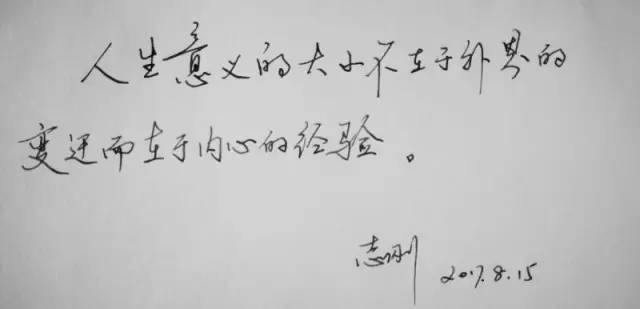 人生意义的大小不在于外界的
变迁而在于内心的经验。
志刚
2017.8.15